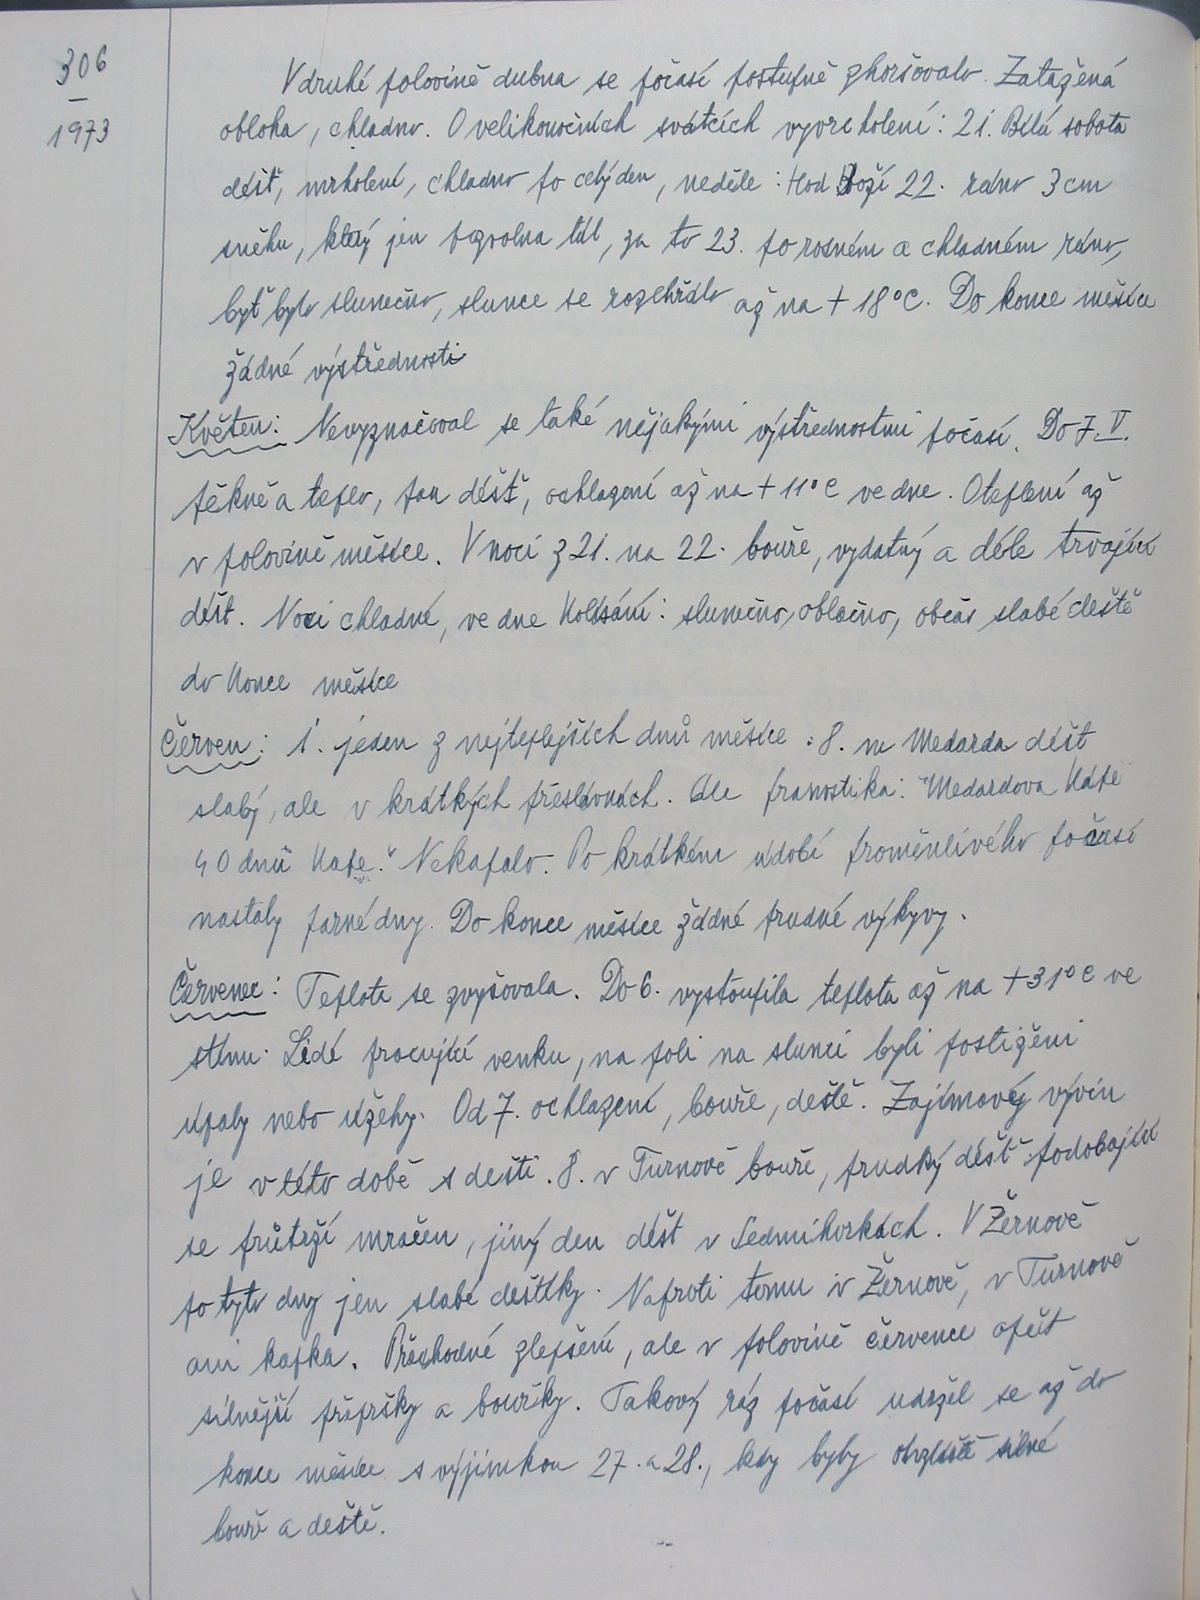 306
1973
V druhé polovině dubna se počasí postupně zhoršovalo. Zatažená
obloha, chladno. O velikonočních svátcích vyvrcholení: 21. Bílá sobota
déšť, mrholení, chladno po celý den, neděle: Hod Boží 22. ráno 3 cm
sněhu, který jen pozvolna tál, za to 23. po rosném a chladném ránu,
byť bylo slunečno, slunce se rozehřálo až na + 18°C. Do konce měsíce
žádné výstřednosti
Květen: Nevyznačoval se také nějakými výstřednostmi počasí. Do 7. V.
pěkně a teplo, pak déšť, ochlazení až na + 11°C ve dne. Oteplení až
v polovině měsíce. V noci z 21. na 22. bouře, vydatný a déle trvající
déšť. Noci chladné, ve dne kolísání: slunečno, oblačno, občas slabé deště
do konce měsíce
Červen: 1. jeden z nejteplejších dnů měsíce. 8. na Medarda déšt
slabý, ale v krátkých přeslávnách. Ale pranostika: "Medardova kápě
40 dnů kape." Nekapalo. Po krátkém údobí proměnlivého počasí
nastaly parné dny. Do konce měsíce žádné prudné výkyvy.
Červenec: Teplota se zvyšovala. Do 6. vystoupila teplota až na + 31°C ve
stínu. Lidé pracující venku, na poli na slunci byli postiženi
úpaly nebo úžehy. Od 7. ochlazení, bouře, deště. Zajímavý vývin
je v této době s dešti. 8. v Turnově bouře, prudký déšť podobající
se průtrži mračen, jiný den déšt v Sedmihorkách. V Žernově
po tyto dny jen slabé deštíky. Naproti tomu i v Žernově, v Turnově
ani kapka. Přechodné zlepšení, ale v polovině července opět
silnější přepršky a bouřky. Takový ráz počasí udržel se až do
konce měsíce s výjimkou 27. a 28., kdy byly obzvláště silné
bouře a deště.